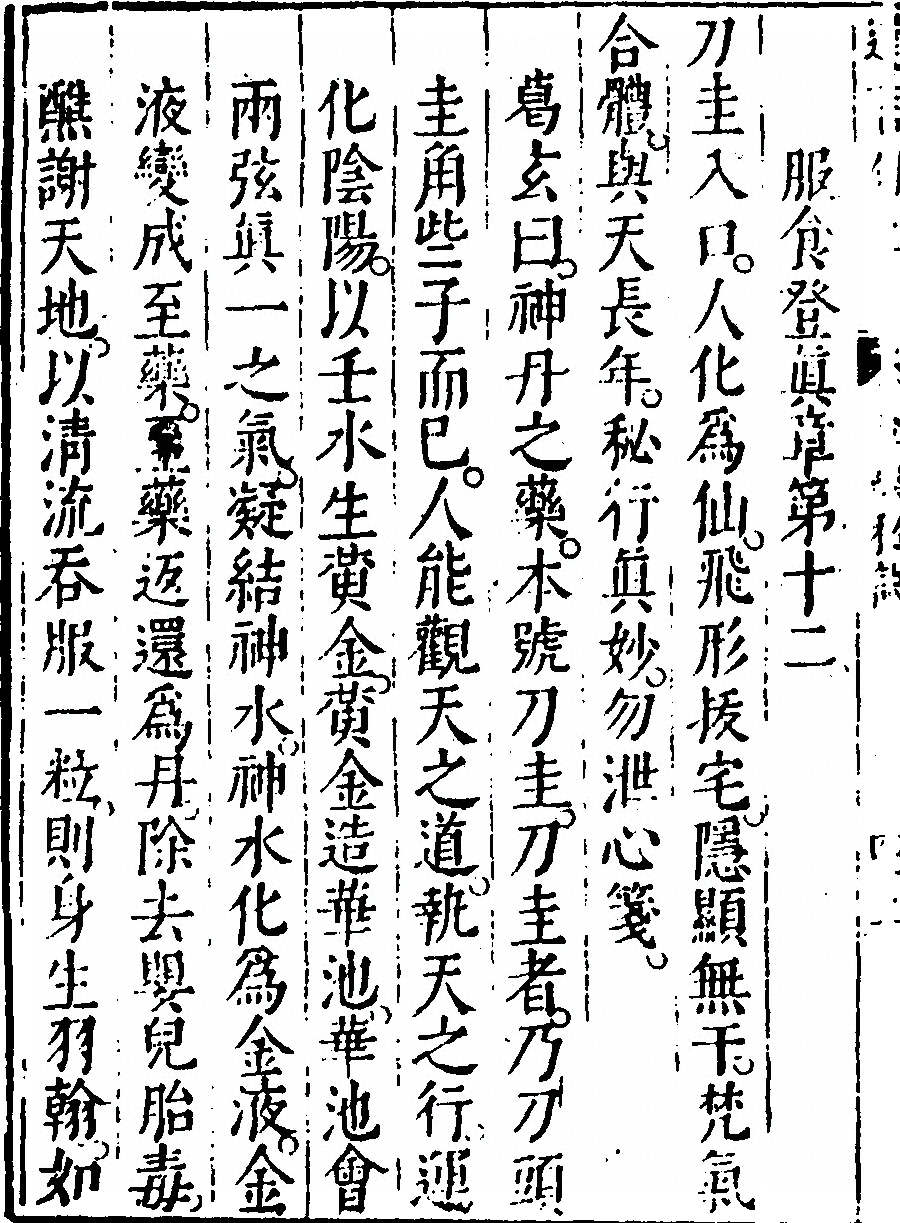 服食登眞章第十二
刀圭入口。人化爲仙。飛形抜宅。隱顯無干。梵氣
合體。與天長年。秘行眞妙。勿泄心箋。
葛玄曰。神丹之藥。本號刀圭。刀圭者。乃刀頭
圭角些子而已。人能觀天之道。執天之行。運
化陰陽。以壬水生黃金。黃金造華池。華池會
兩弦眞一之氣。凝結神水。神水化爲金液。金
液變成至藥。藥返還爲丹。除去嬰兒胎毒。
醮謝天地。以清流吞服一粒。則身生羽翰。如